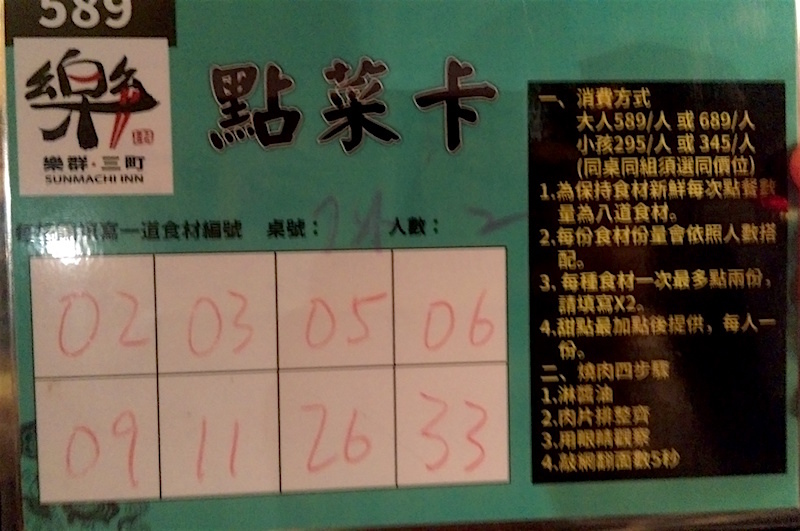 589
樂
樂群·三町
SUNMACHI INN
點菜卡
填寫一道食材編號 桌號： 人數：2
02 03 05 06
09 11 26 33
一、消費方式
大人589/人 或 689/人
小孩295/人 或 345/人
(同桌同組須選同價位)
1.為保持食材新鮮每次點餐數
量為八道食材。
2.每份食材份量會依照人數搭
配。
3.每種食材一次最多點兩份，
請填寫X2。
4.甜點最加點後提供，每人一
份。
二、燒肉四步驟
1.淋醬油
2.肉片排整齊
3.用眼睛觀察
4.敲網翻面數5秒